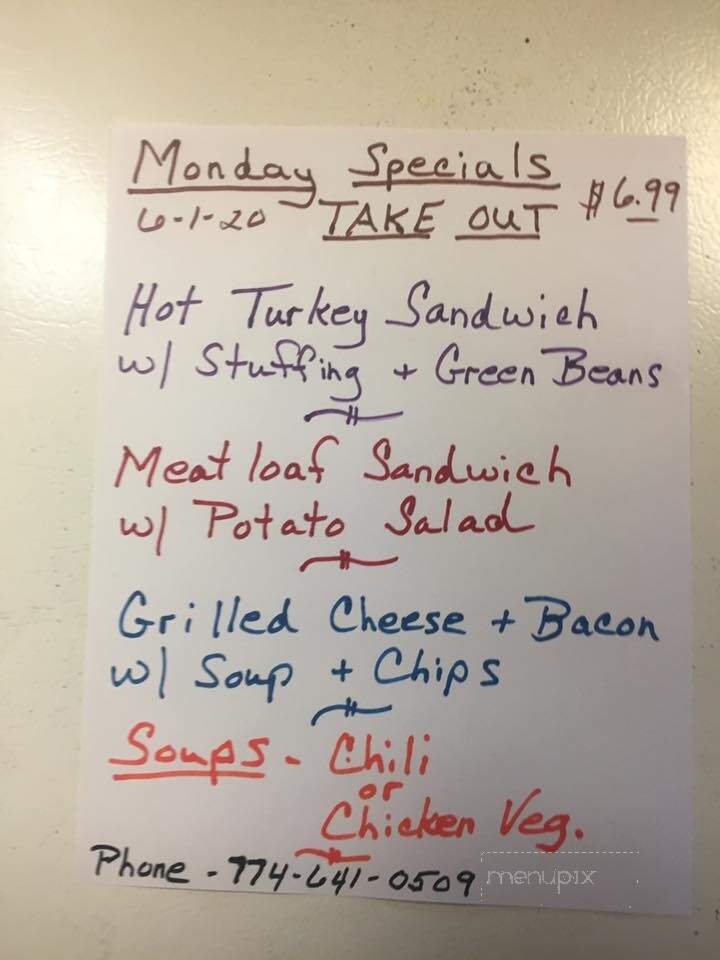 Monday Specials $6.99
6-1-20 TAKE OUT
Hot Turkey Sandwich
w/ Stuffing + Green Beans
Meat loaf Sandwich
w/ Potato Salad
Grilled Cheese + Bacon
w/ Soup + Chips
Soups - Chili
or
Chicken Veg.
Phone - 774-641-0509
menupix